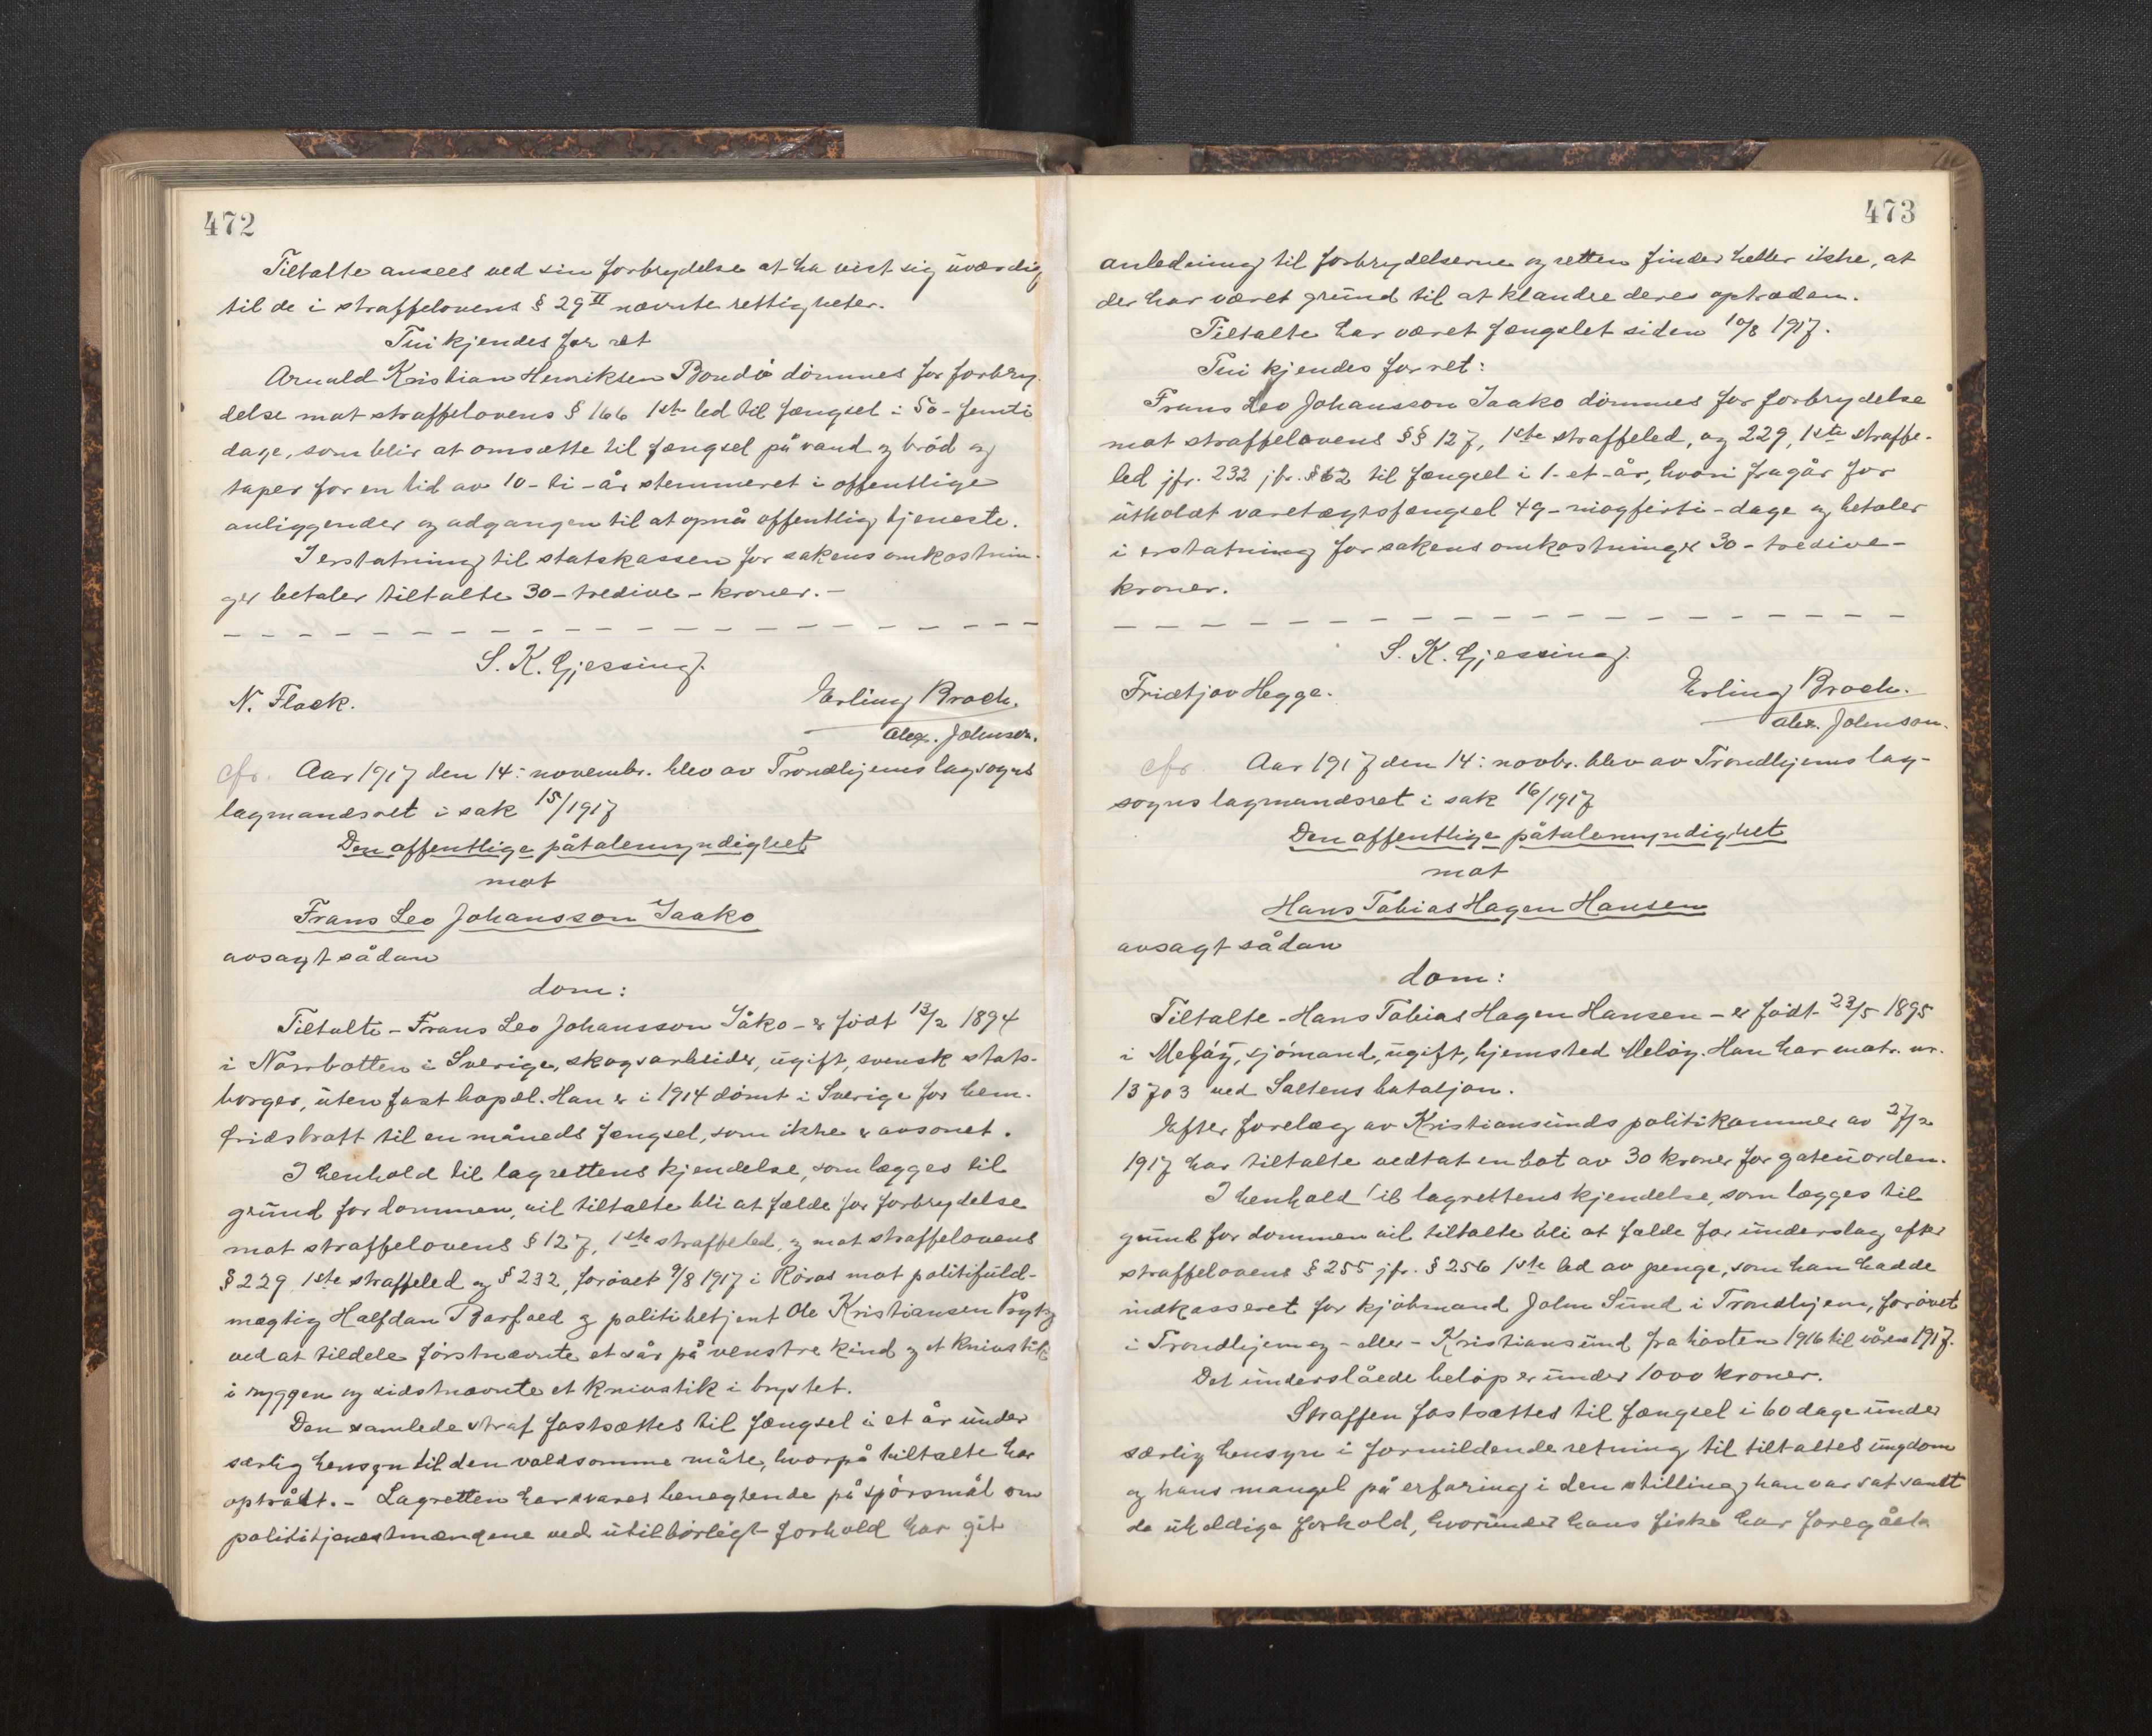 472
Tiltalte ansees ved sin forbrydelse at ha vist sig uværdig
til de i straffelovens § 29 II nævnte rettigheter.
Tui kjendes for ret
Arnald Kristian Henriksen Bondø dømmes for forbry-
delse mot straffelovens § 166 1ste led til fængsel i 50 - femti
dage, som blir at omsætte til fængsel på vand og brød og
taper for en tid av 10 - ti - år stemmeret i offentlige
anliggender og adgangen til at opnå offentlig tjeneste.
I erstatning til statskassen for sakens omkostnin-
ger betaler tiltalte 30 - tredive - kroner. -
S. K. Gjessing.
N. Flack. Erling Broch.
Alex. Johnsen.
cfr. Aar 1917 den 14: novembr. blev av Trondhjems lagsogns
lagmandsret i sak 15/1917
Den offentlige påtalemyndighet
mot
Frans Leo Johansson Jaako
avsagt sådan
dom:
Tiltalte - Frans Leo Johansson Jåko - er født 13/2 1894
i Norrbotten i Sverige, skogsarbeider, ugift, svensk stats-
borger, uten fast bopæl. Han er i 1914 dømt i Sverige for hem-
fridsbrott til en måneds fængsel, som ikke er avsonet.
I henhold til lagrettens kjendelse, som lægges til
grund for dommen, vil tiltalte bli at fælde for forbrydelse
mot straffelovens § 127, 1ste straffeled, og mot straffelovens
§ 229 1ste straffeled og § 232, forøvet 9/8 1917 i Røros mot politifuld-
mægtig Halfdan Barfoed og politibetjent Ole Kristiansen
ved at tildele førstnævnte et sår på venstre kind og et knivstik
i ryggen og sidstnævnte et knivstik i brystet.
Den samlede straf fastsættes til fængsel i et år under
særlig hensyn til den voldsomme måte, hvorpå tiltalte har
optrådt. - Lagretten har svaret benegtende på spørsmål om
polititjenestmændene ved utilbørligt forhold har git
473
anledning til forbrydelserne og retten finder heller ikke, at
der har været grund til at klandre deres optræden.
Tiltalte har været fængslet siden 10/8 1917.
Tui kjendes for ret:
Frans Leo Johansson Jaako dømmes for forbrydelse
mot straffelovens §§ 127, 1ste straffeled, og 229, 1ste straffe-
led jfr. 232 jfr. § 62 til fængsel i 1 - et - år, hvori fragår for
utholdt varetægtsfængsel 49 - niogførti - dage og betaler
i erstatning for sakens omkostninger 30 - tredive -
kroner.
S. K. Gjessing.
Fridtjov Hegge. Erling Broch.
Alex. Johnson.
cfr Aar 1917 den 14: novbr. blev av Trondhjems lag-
sogns lagmandsret i sak 16/1917
Den offentlige påtalemyndighet
mot
Hans Tobias Hagen Hansen
avsagt sådan
dom:
Tiltalte - Hans Tobias Hagen Hansen - er født 23/5 1895
i Meløy, sjømand, ugift, hjemsted Meløy. Han har matr. nr.
13703 ved Saltens bataljon.
Efter forelæg av Kristiansunds politikammer av 27/2
1917 har tiltalte vedtat en bot av 30 kroner for gateuorden.
I henhold til lagrettens kjendelse, som lægges til
grund for dommen vil tiltalte bli at fælde for underslag efter
straffelovens § 255 jfr. § 256 1ste led av penge, som han hadde
indkasseret for kjøbmand John Sund i Trondhjem, forøvet
i Trondhjem og - eller - Kristiansund fra høsten 1916 til våren 1917.
Det underslåede beløp er under 1000 kroner.
Straffen fastsættes til fængsel i 60 dage under
særlig hensyn i formildende retning til tiltaltes ungdom
og hans mangel på erfaring i den stilling han var sat samt
de uheldige forhold, hvorunder hans fiske har foregået